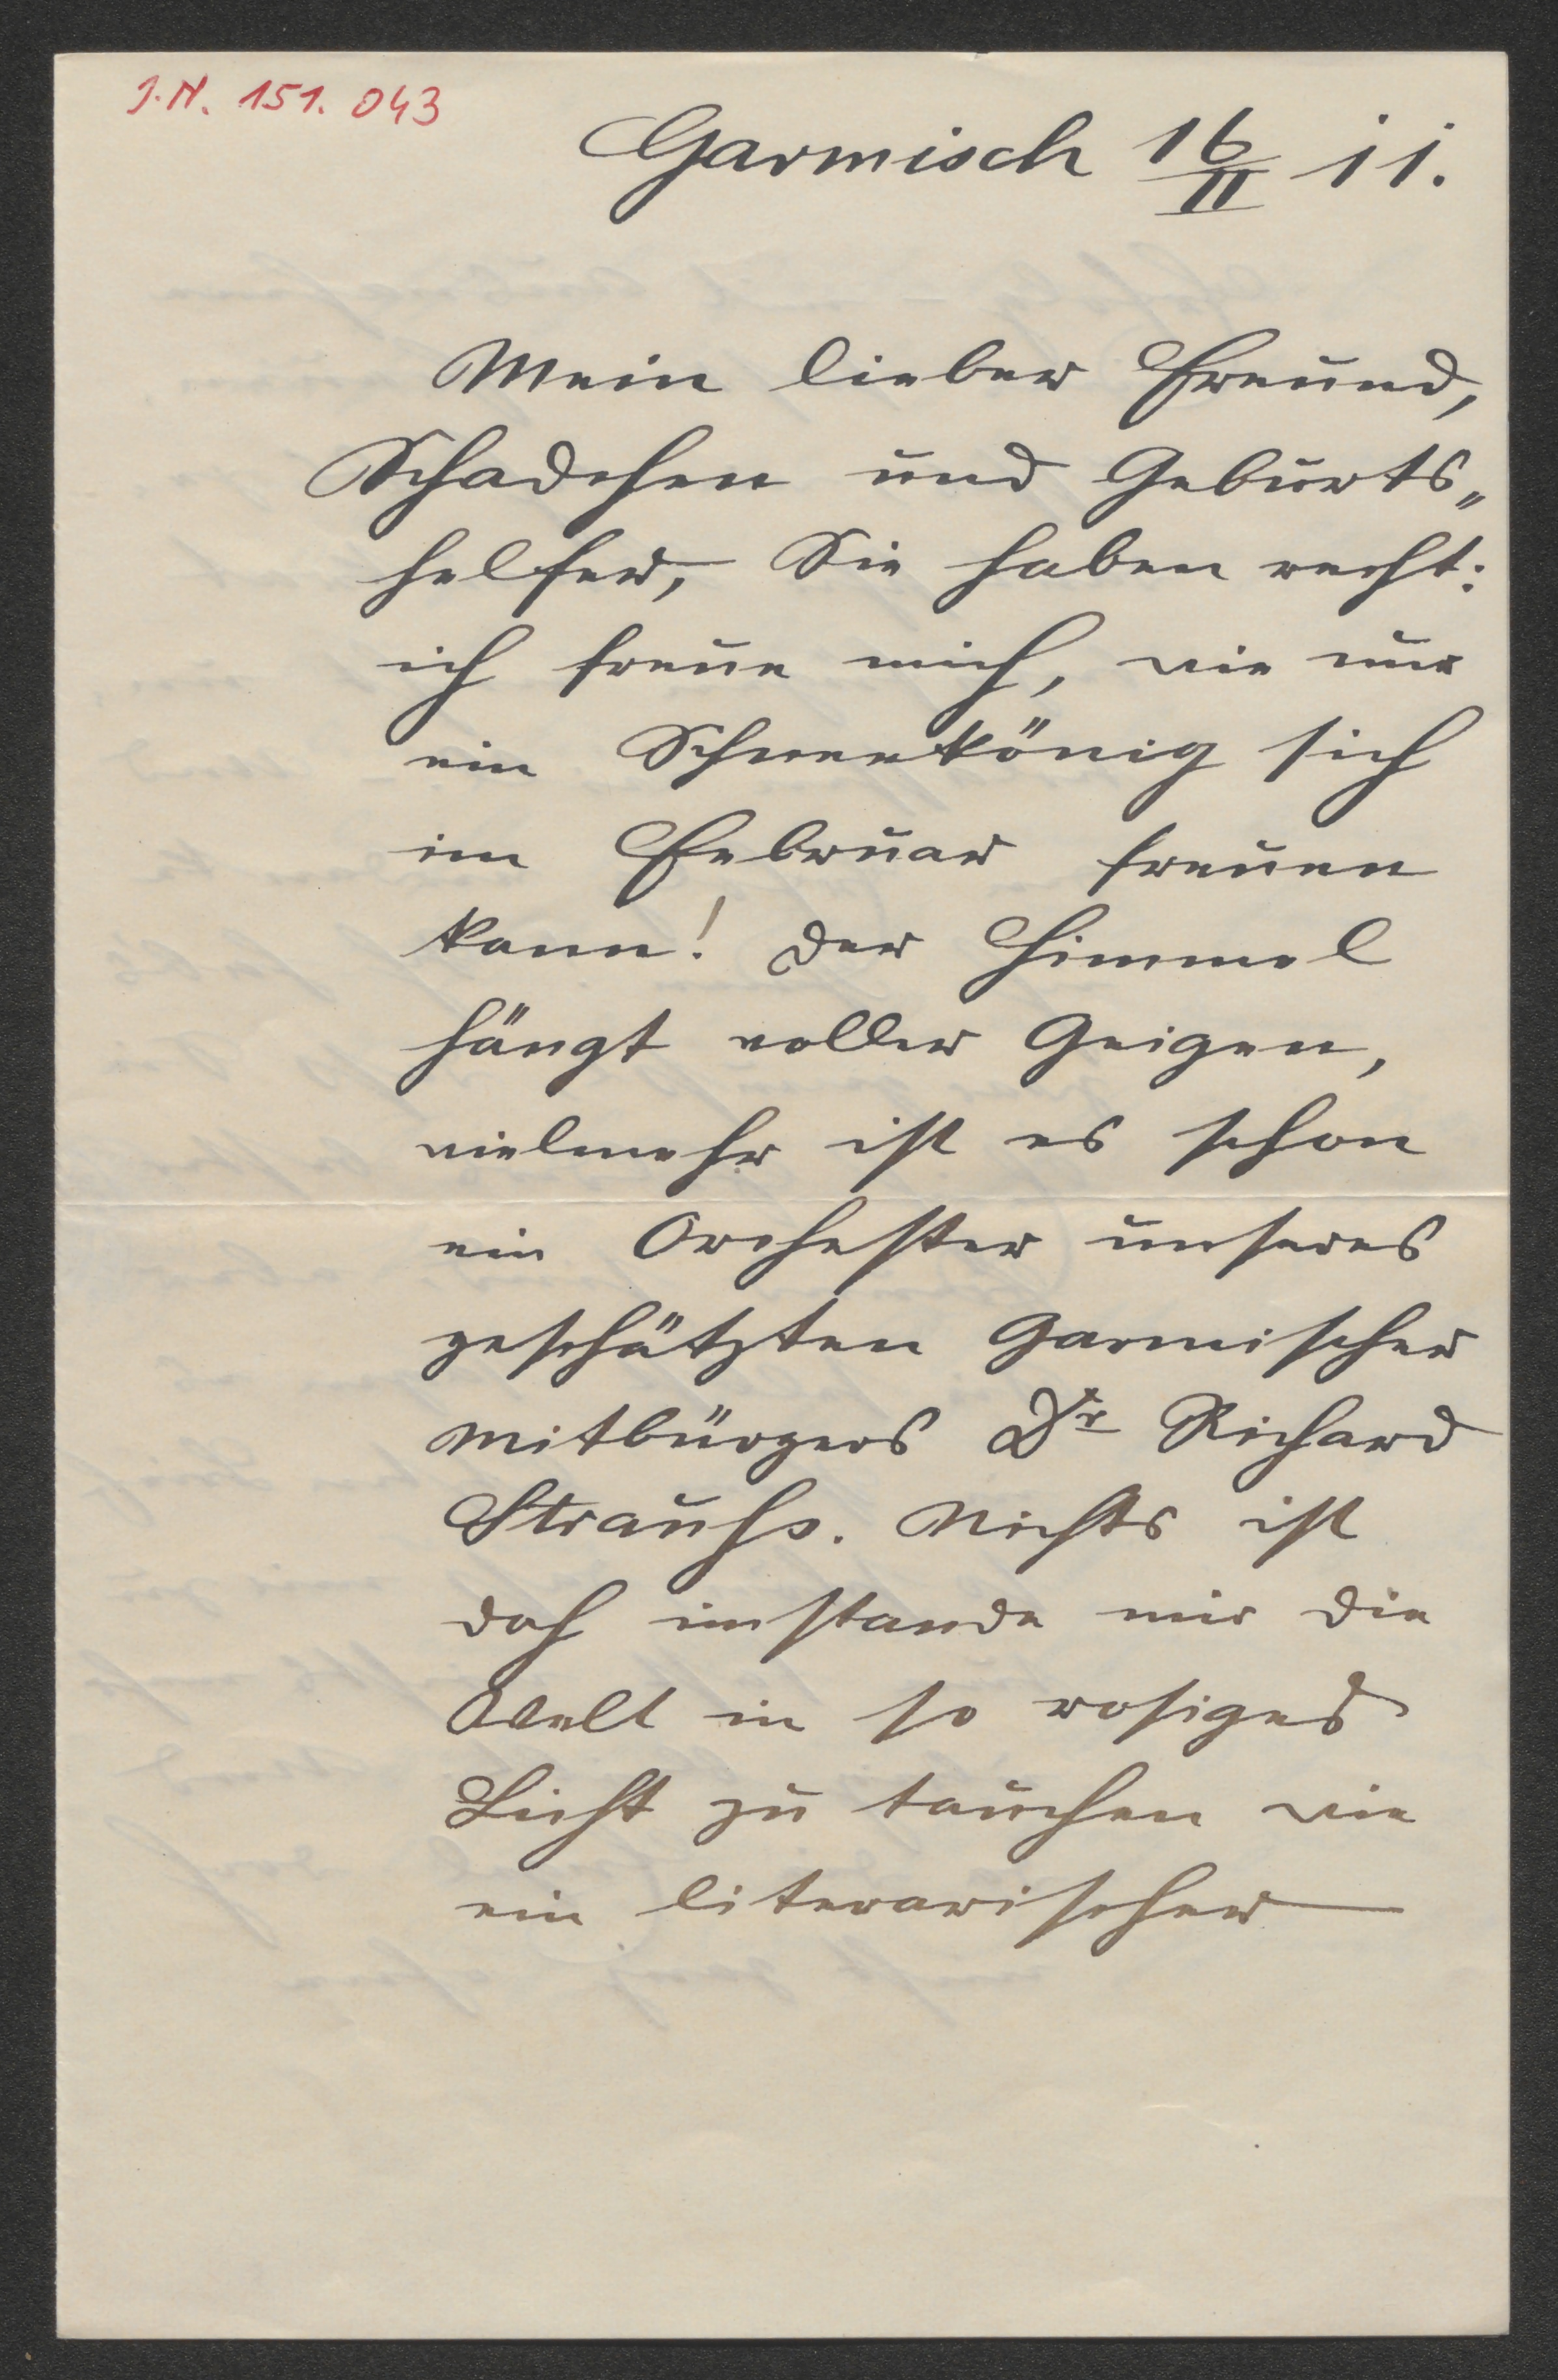 J.N. 151.043
Garmisch 16/II 11.
Mein lieber Freund,
Schadchen und Geburts„
helfer, Sie haben recht:
ich freue mich, wie nur
ein Schneekönig sich
im Februar freuen
kann! Der Himmel
hängt voller Geigen,
vielmehr ist es schon
ein Orchester unseres
geschätzten Garmischer
Mitbürgers Dr Richard
Strauss. Nichts ist
doch imstande mir die
Welt in so rosiges
Licht zu tauchen wie
ein literarischer